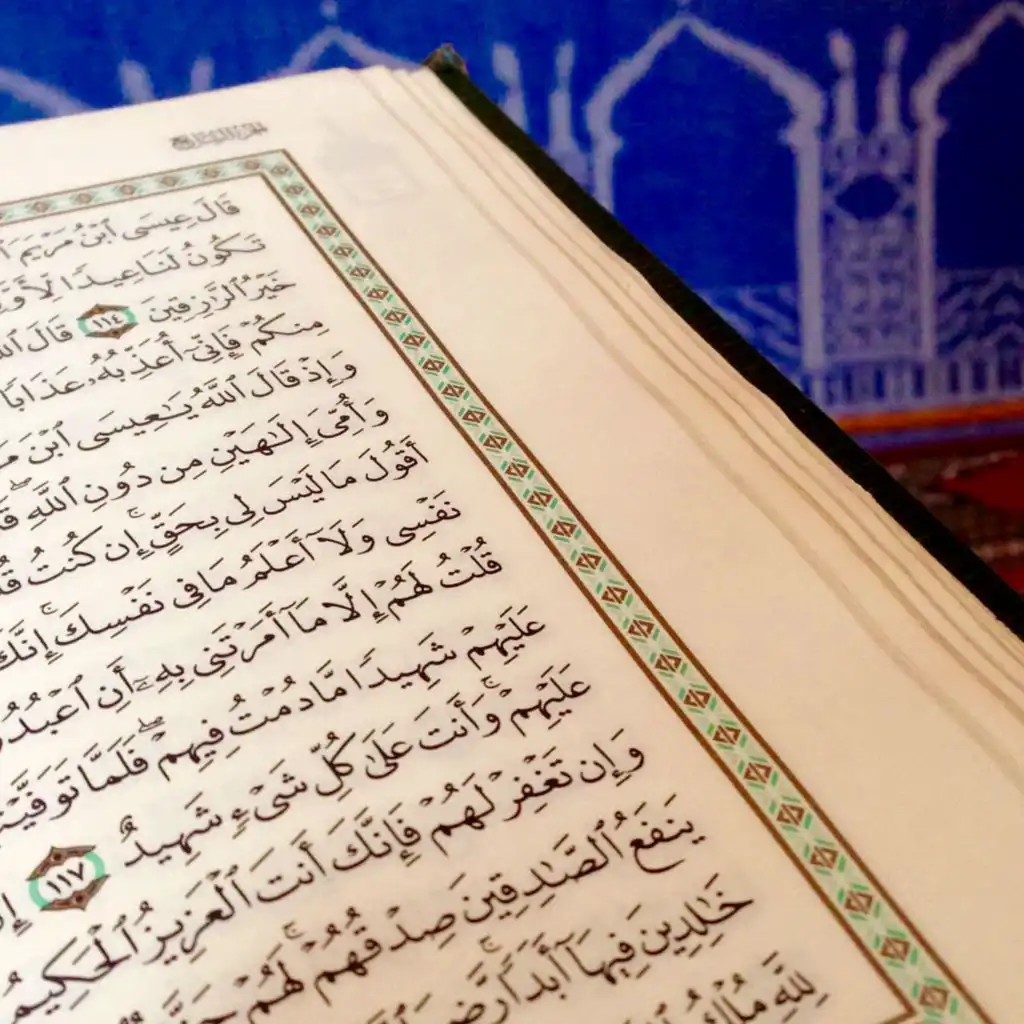 قَالَ عِيسَى ٱبْنُ مَرْيَمَ
تَكُونُ لَنَا عِيدًا لِّأَوَّ
خَيْرُ ٱلرَّٰزِقِينَ ١١٤ قَالَ ٱللَّ
مِنكُمْ فَإِنِّىٓ أُعَذِّبُهُۥ عَذَابًا
وَإِذْ قَالَ ٱللَّهُ يَٰعِيسَى ٱبْنَ مَرْ
وَأُمِّىَ إِلَٰهَيْنِ مِن دُونِ ٱللَّهِ ۖ قَ
أَقُولَ مَا لَيْسَ لِى بِحَقٍّ ۚ إِن كُنتُ قُ
نَفْسِى وَلَآ أَعْلَمُ مَا فِى نَفْسِكَ ۚ إِنَّكَ
قُلْتُ لَهُمْ إِلَّا مَآ أَمَرْتَنِى بِهِۦٓ أَنِ ٱعْبُدُو
عَلَيْهِمْ شَهِيدًا مَّا دُمْتُ فِيهِمْ ۖ فَلَمَّا تَوَفَّيْتَ
عَلَيْهِمْ ۚ وَأَنتَ عَلَىٰ كُلِّ شَىْءٍ شَهِيدٌ ١١٧ إِ
وَإِن تَغْفِرْ لَهُمْ فَإِنَّكَ أَنتَ ٱلْعَزِيزُ ٱلْحَكِيمُ
يَنفَعُ ٱلصَّٰدِقِينَ صِدْقُهُمْ ۚ لَهُمْ
خَٰلِدِينَ فِيهَآ أَبَدًا ۚ رَّضِ
لِلَّهِ مُلْكُ